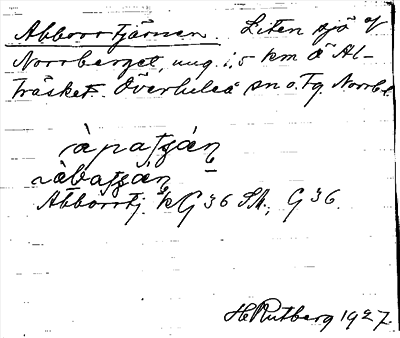 Abborrtjärnen. Liten sjö ö
Norrberget, ung. 1,5 km ö Al-
träsket. Överluleå sn o. tg. Norrb. l.
àpatʃán
àbatʃán
Abborrtj. k G 36 SA., G 36.
H Rutberg 1927.